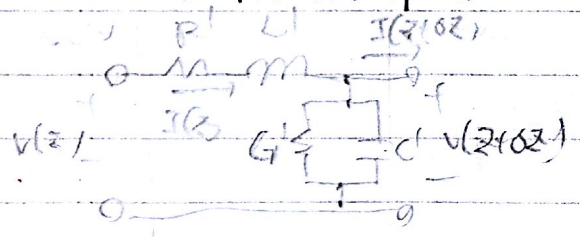 R' L' I(z+Δz)
I(z)
V(z) G' C' V(z+Δz)
+
-